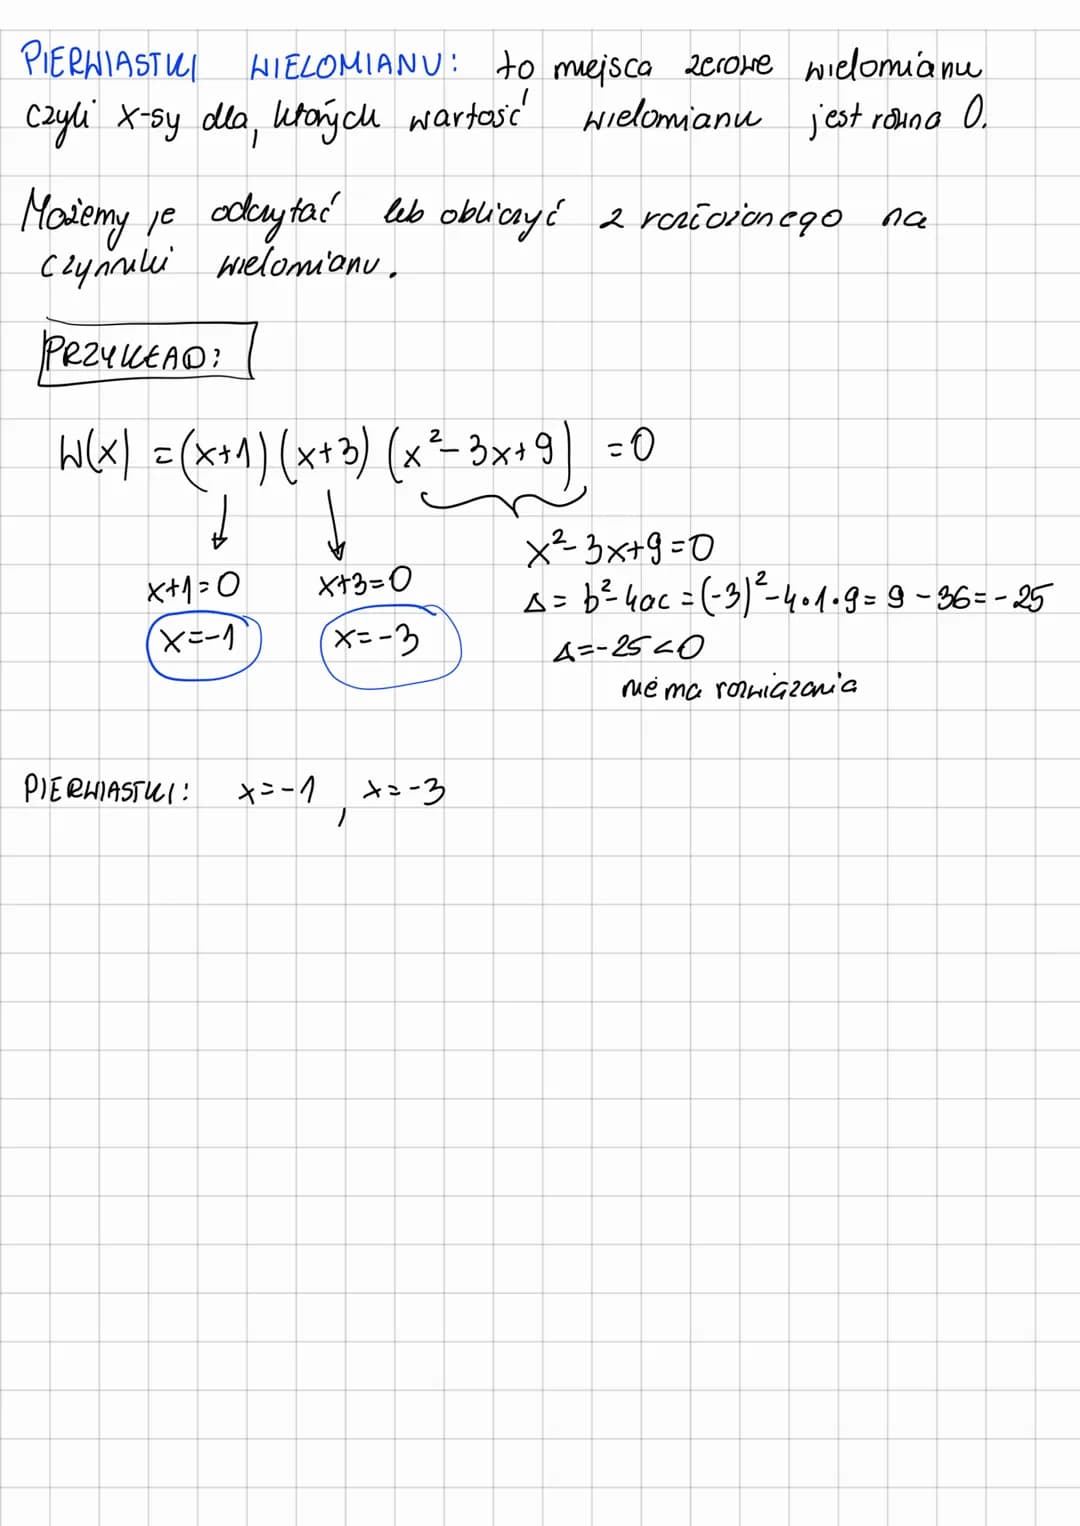 PIERWIASTKI WIELOMIANU: to miejsca zerowe wielomianu
czyli x-sy dla, których wartość wielomianu jest równa 0.
Możemy je odczytać lub obliczyć z rozłożonego na
czynniki wielomianu.
PRZYKŁAD:
W(x) = (x+1)(x+3)(x²-3x+9) = 0
x+1=0 x+3=0 x²-3x+9=0
x=-1 x=-3 Δ= b²-4ac = (-3)²-4·1·9= 9-36=-25
Δ=-25<0
nie ma rozwiązania
PIERWIASTKI: x=-1, x=-3